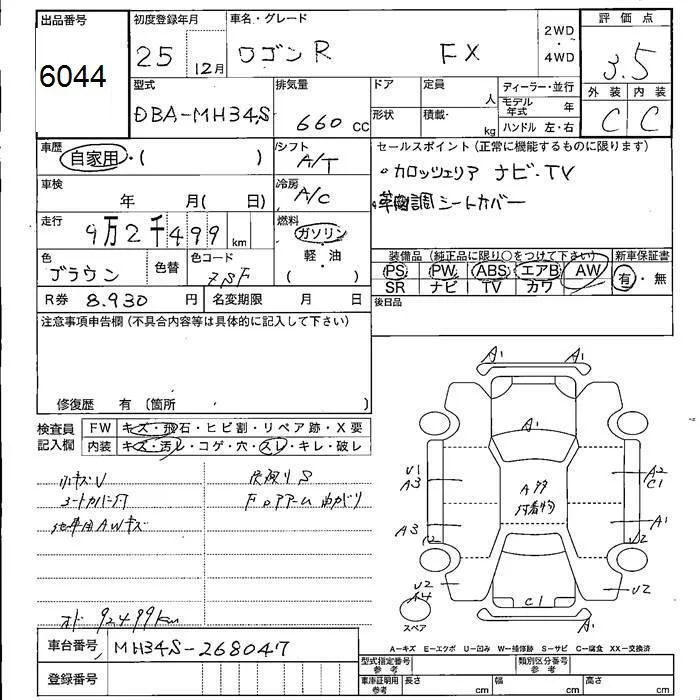 出品番号
6044
初度登録年月
25 12月
車名・グレード
ワゴンR FX
2WD
・
4WD
評価点
3.5
外装 内装
C C
型式
DBA-MH34S
排気量
660 cc
ドア
形状
定員
人
積載
kg
ディーラー・並行
モデル年式 年
ハンドル 左・右
車歴
自家用・( )
シフト
A/T
車検
年 月( 日)
冷房
A/C
走行
9万2千499 km
燃料
ガソリン
軽・油
( )
色
ブラウン
色替
色コード
ZSF
R券 8.930 円
名変期限 月 日
セールスポイント(正常に機能するものに限ります)
・カロッツェリア ナビ・TV
革調シートカバー
装備品(純正品に限り○をつけて下さい) 新車保証書
PS PW ABS エアB AW
SR ナビ TV カワ
有・無
後日品
注意事項申告欄(不具合内容等は具体的に記入して下さい)
修復歴 有 〔箇所 〕
検査員
記入欄
FW キズ・飛石・ヒビ割・リペア跡・X要
内装 キズ・汚レ・コゲ・穴・スレ・キレ・破レ
小キズV
シートカバー付
他車用AWキズ
灰皿リS
FロアアームまがりO
オド 92499km
車台番号 MH34S-268047
登録番号
A1 A1
A1
U1
A3
A2
C1
A99
付着物
A3
A1
U2
A4
U2
C1
A1
スペア
A-キズ E-エクボ U-凹み W-補修跡 S-サビ C-腐食 XX-交換済
型式指定番号
参考
類別区分番号
参考
車庫証明用
参考
長さ cm 幅 cm 高さ cm